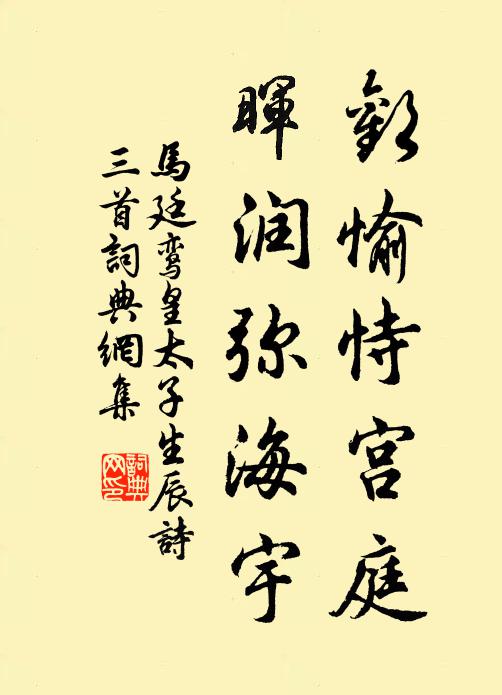 歡愉恃宫庭
暉润弥海宇
馬廷鸾皇太子生辰詩
三首詞典網集
詞典
网印